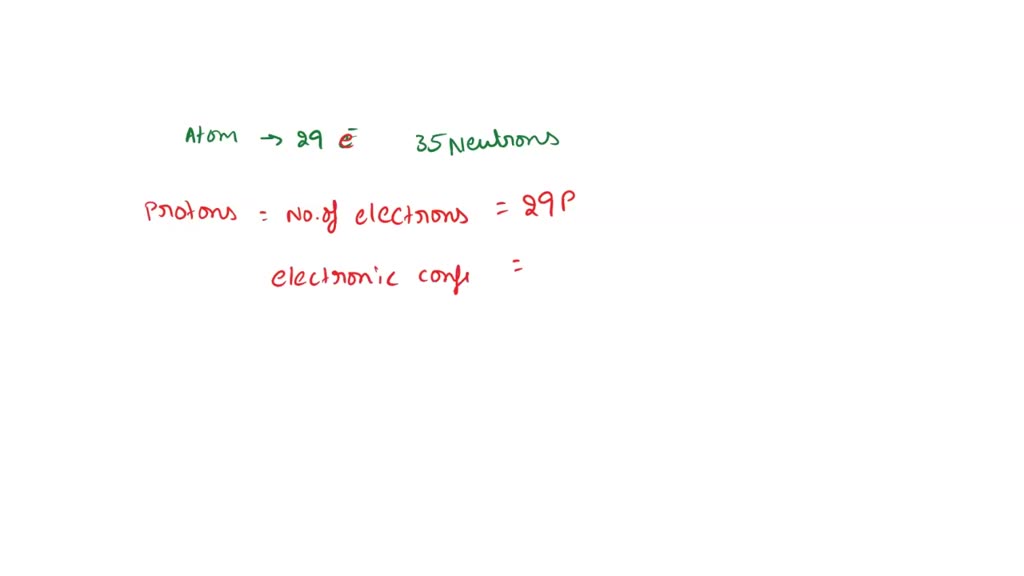 Atom → 29 e⁻ 35 Neutrons
Protons = No. of electrons = 29P
electronic conf =